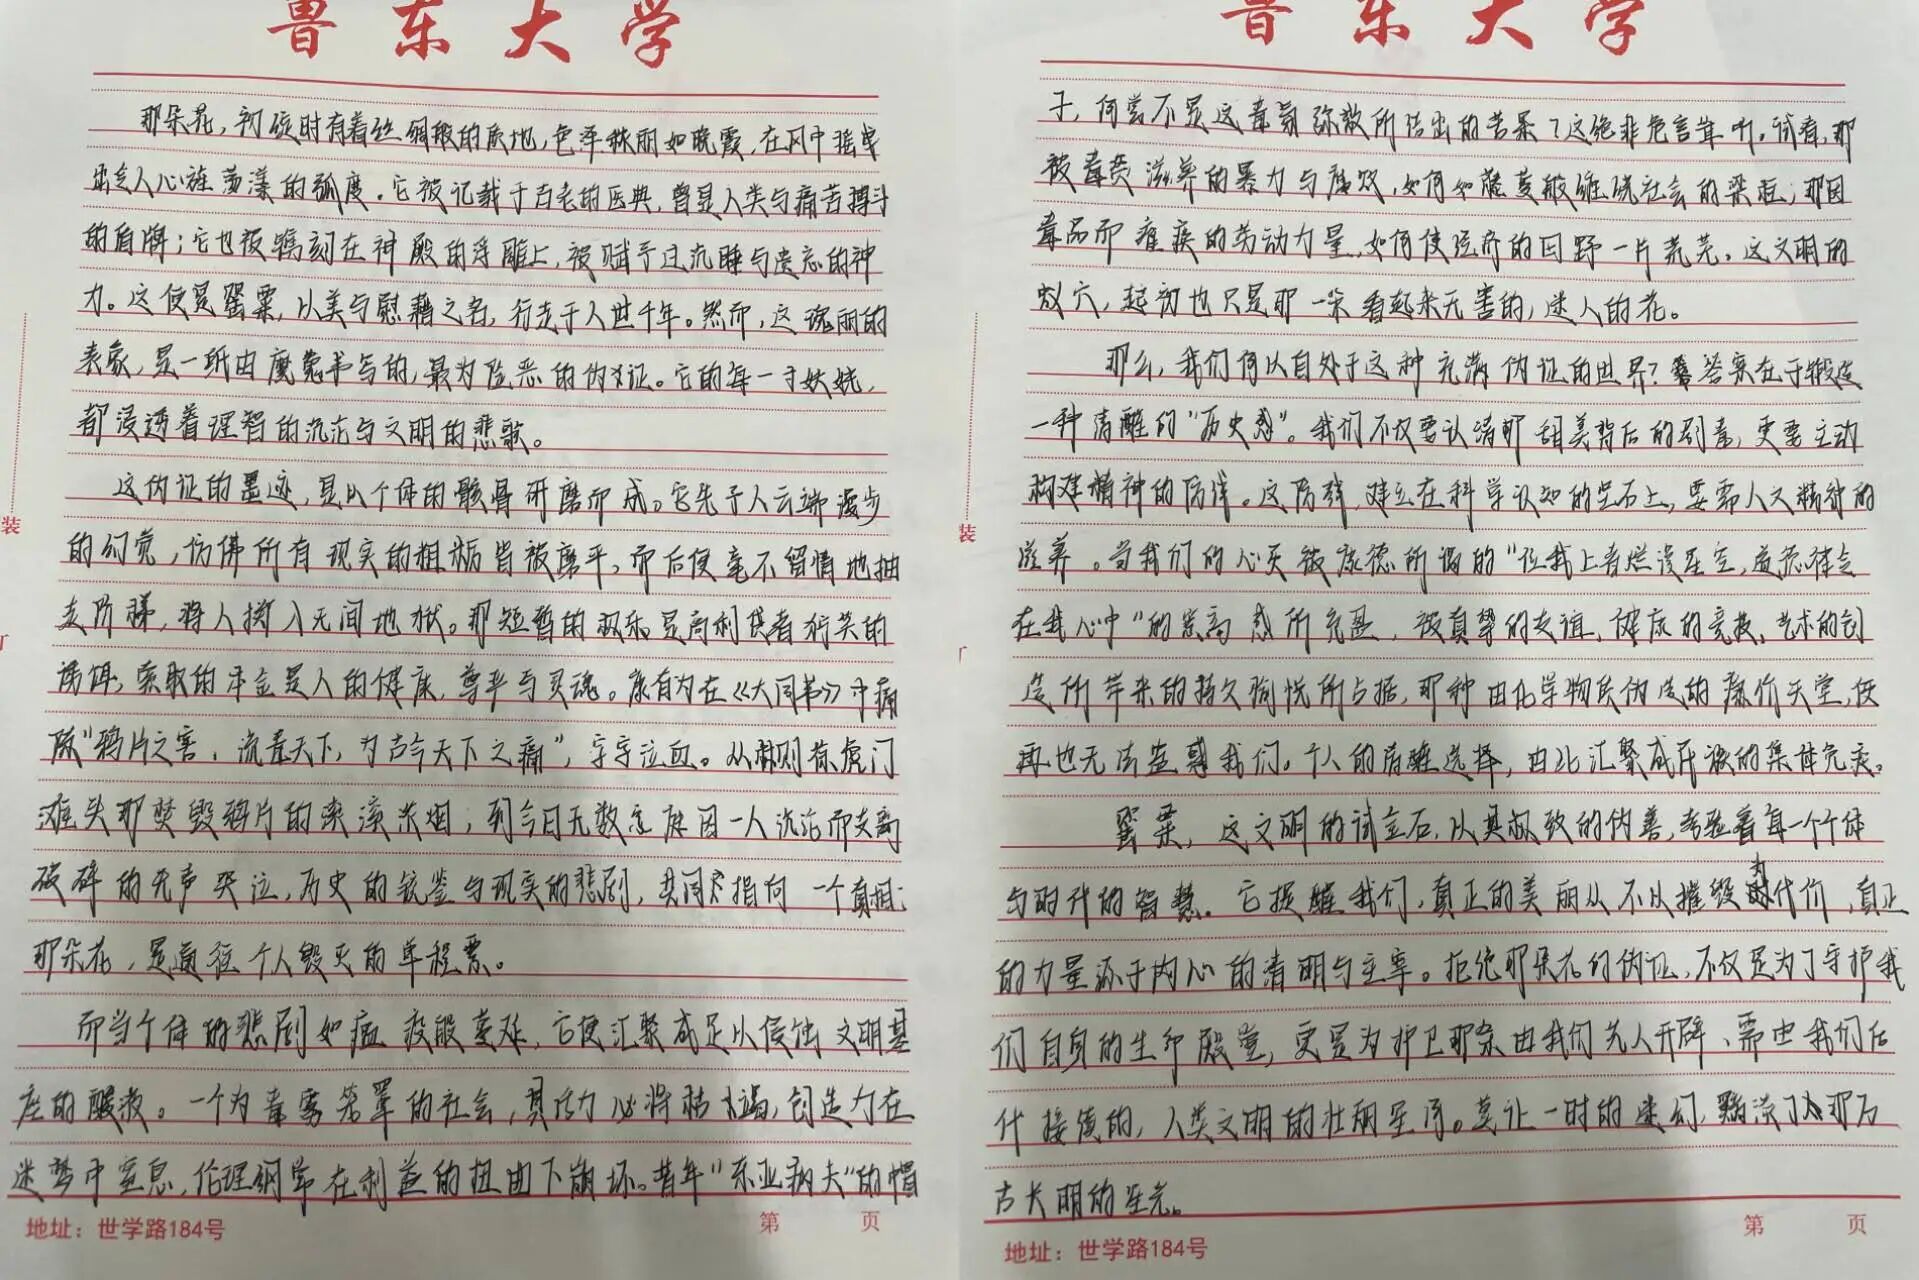 鲁东大学
那朵花，初绽时有着丝绸般的质地，色泽秾丽如晚霞，在风中摇曳
出令人心旌荡漾的弧度。它被记载于古老的医典，曾是人类与痛苦搏斗
的盾牌；它也被镌刻在神殿的浮雕上，被赋予过沉睡与遗忘的神
力。这便是罂粟，以美与慰藉之名，行走于人世千年。然而，这瑰丽的
表象，是一纸由魔鬼书写的，最为险恶的伪证。它的每一寸妖娆，
都浸透着理智的沉沦与文明的悲歌。
这伪证的墨迹，是以个体的骸骨研磨而成。它先予人云端漫步
的幻觉，仿佛所有现实的粗粝皆被磨平，而后便毫不留情地抽
去阶梯，将人掷入无间地狱。那短暂的欢乐是高利贷者狞笑的
诱饵，索取的本金是人的健康，尊严与灵魂。康有为在《大同书》中痛
陈“鸦片之害，流毒天下，为古今天下之痛”，字字泣血。从林则徐虎门
滩头那焚毁鸦片的滚滚浓烟；到今日无数家庭因一人沉沦而支离
破碎的无声哭泣，历史的镜鉴与现实的悲剧，共同指向一个真相：
那朵花，是通往个人毁灭的单程票。
而当个体的悲剧如瘟疫般蔓延，它便汇聚成足以侵蚀文明基
座的酸液。一个为毒雾笼罩的社会，其活力必将枯竭，创造力在
迷梦中窒息，伦理纲常在利益的扭曲下崩坏。昔年“东亚病夫”的帽
地址：世学路184号
第 页
装
鲁东大学
子，何尝不是这毒氛弥散所结出的苦果？这绝非危言耸听。试看，那
被毒资滋养的暴力与腐败，如何如藤蔓般缠绕社会的梁柱；那因
毒品而痿疾的劳动力量，如何使经济的田野一片荒芜。这文明的
蚁穴，起初也只是那一朵看起来无害的，迷人的花。
那么，我们何以自处于这种充满伪证的世界？答案在于锻造
一种清醒的“历史感”。我们不仅要认清那甜美背后的剧毒，更要主动
构建精神的防线。这防线，建立在科学认知的坚石上，要需人文精神的
滋养。当我们的心灵被康德所谓的“位我上者灿烂星空，道德律令
在我心中”的崇高感所充盈，被真挚的友谊、健康的竞技、艺术的创
造所带来的持久愉悦所占据，那种由化学物质伪造的廉价天堂，便
再也无法蛊惑我们。个人的清醒选择，由此汇聚成民族的集体免疫。
罂粟，这文明的试金石，以其极致的伪善，考验着每一个个体
与时代的智慧。它提醒我们，真正的美丽从不以摧毁为代价，真正
的力量源于内心的清明与主宰。拒绝那朵花的伪证，不仅是为了守护我
们自身的生命殿堂，更是为护卫那条由我们先人开辟、需由我们后
代接续的，人类文明的壮丽星河。莫让一时的迷幻，黯淡了那万
古长明的星光。
地址：世学路184号
第 页
装